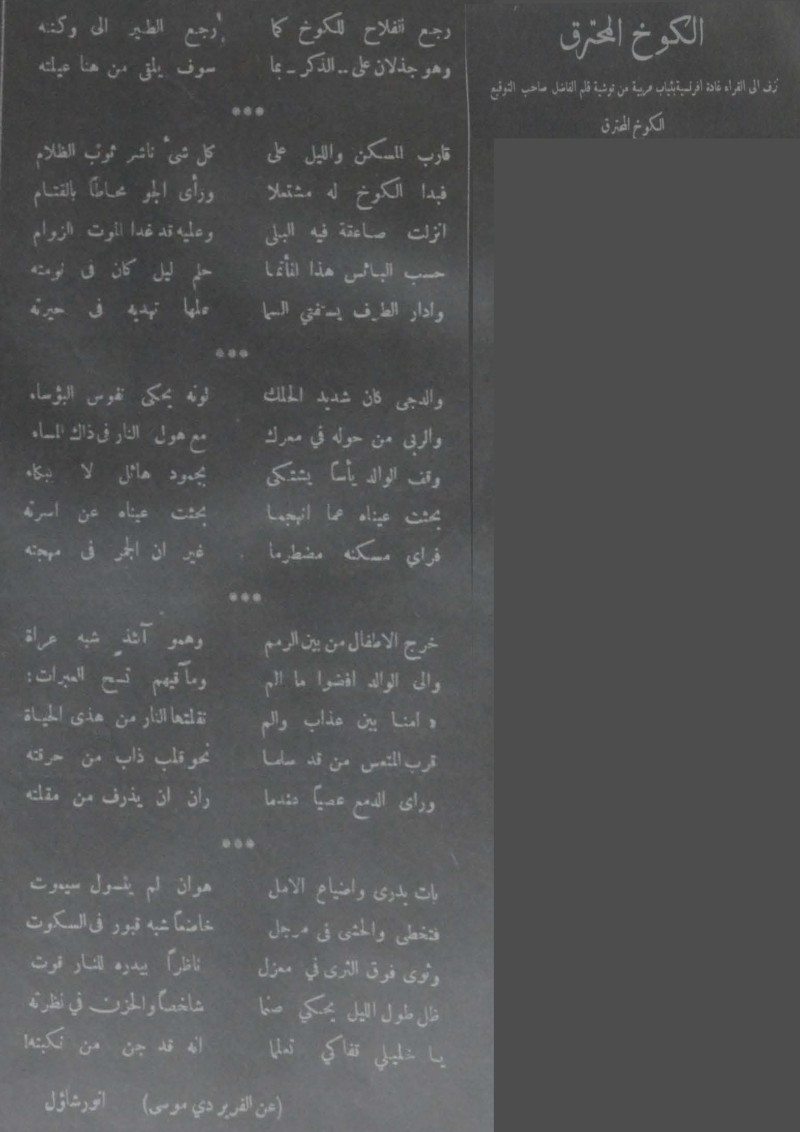 الكوخ المحترق
نزف الى القراء غادة افرنسية بثياب عربية من توشية قلم الفاضل صاحب التوقيع
الكوخ المحترق
رجع الفلاح للكوخ كما أرجع الطير الى وكنه
وهو جذلان على .. الذكر ـ بما سوف يلقى من هنا عيلته
***
قارب المسكن والليل على كل شئ ناشر ثوب الظلام
فبدا الكوخ له مشتملا ورأى الجو محاطاً بالقتام
انزلت صاعقة فيه البلى وعليه قد غدا الموت الزوام
حسب البائس هذا انما حلم ليل كان فى نومته
وادار الطرف يستفتي السما علها تهديه فى حيرته
***
والدجى كان شديد الحلك لونه يحكى نفوس البؤساء
والربى من حوله في معرك مع هول النار فى ذاك المساء
وقف الوالد يأساً يشتكى بجمود هائل لا ببكاء
بحثت عيناه عما انبهما بحثت عيناه عن اسرته
فراي مسكنه مضطرما غير ان الجمر فى مهجته
***
خرج الاطفال من بين الرمم وهمو آنئذ شبه عراة
والى الوالد افضوا ما الم ومآقيهم تسح العبرات:
« امنا بين عذاب والم نقلتها النار من هذى الحياة
قرب المتعس من قد سلما نحو قلب ذاب من حرقته
وراى الدمع عصياً عندما ران ان يذرف من مقلته
***
بات يدرى واضياع الامل هوان لم يقول سيموت
فتخطى والحشى فى مرجل خاضعاً شبه قبور فى السكوت
وثوى فوق الثرى في معزل ناظراً بيدره للنار قوت
ظل طول الليل يحكي صنما شاخصاً والحزن في نظرته
يا خليلي قفاكي تعلما انه قد جن من نكبته!
(عن الفرير دي موسى) انور شاؤل